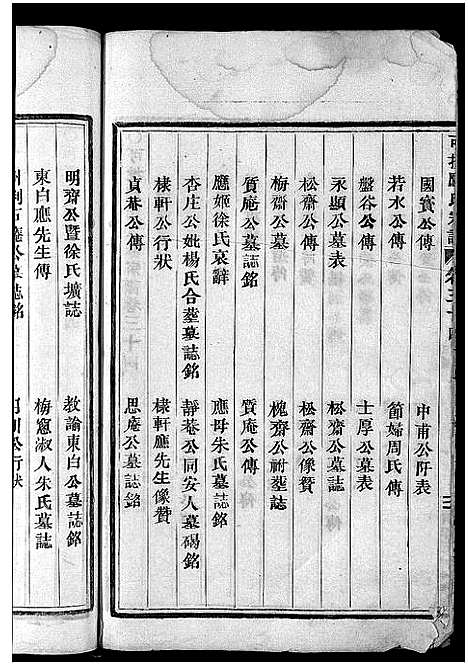 國賓公傳
申甫公阡表
若水公傳
節婦周氏傳
盤谷公傳
士厚公墓表
永顯公墓表
松齋公墓誌
松齋公傳
松齋公像贊
梅齋公墓誌銘
槐齋公祔塟誌
質庵公墓誌銘
質庵公傳
應姬徐氏哀辭
應母朱氏墓誌銘
杏庄公妣楊氏合塟墓誌銘
靜菴公同安人墓碣銘
棣軒公行狀
棣軒應先生像贊
貞菴公傳
思庵公墓誌銘
明齋公暨徐氏壙誌
教諭東白公墓誌銘
東白應先生傳
梅窓淑人朱氏墓誌
庵公墓誌銘
公行狀